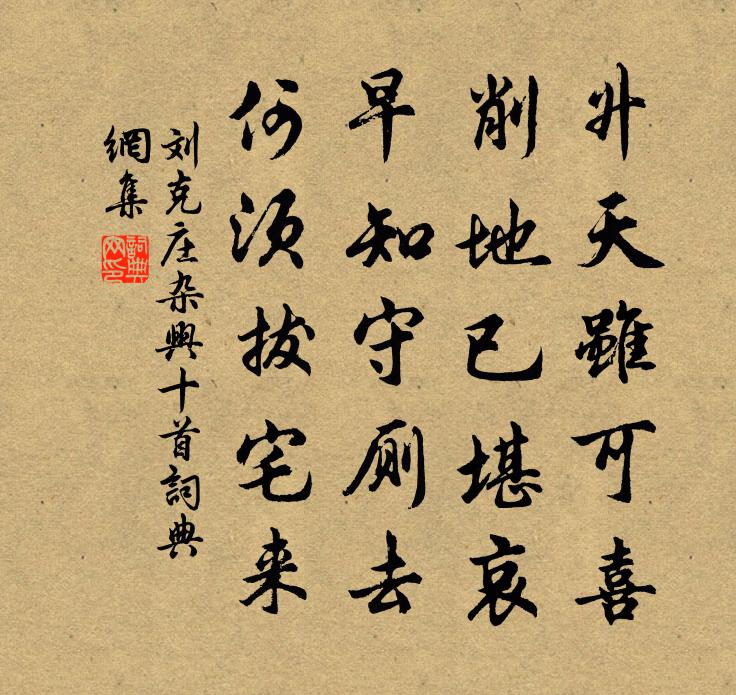 升天雖可喜
削地已堪哀
早知守厕去
何須拔宅来
刘克庄杂興十首詞典
網集
詞典網印